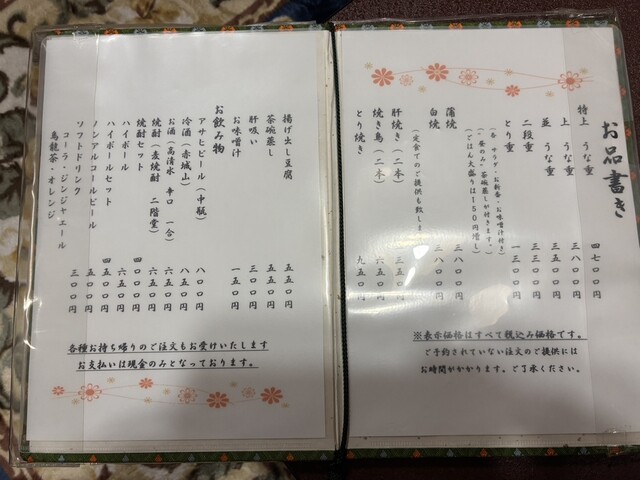 お品書き
特上 うな重 四七〇〇円
上 うな重 三八〇〇円
並 うな重 三三五〇円
二段重 五五〇〇円
とり重 一三〇〇円
サラダ・お新香・お味噌汁付き)
昼のみ・茶碗蒸しが付きます。)
(ごはん大盛りは150円増し)
蒲焼 三八〇〇円
白焼 三八〇〇円
(定食でのご提供も致しま
肝焼き(二本) 三五〇円
焼き鳥(二本) 六五〇円
とり焼き 九五〇円
※表示価格はすべて税込み価格です。
ご予約されていない注文のご提供には
お時間がかかります。ご了承ください。
揚げ出し豆腐 五五〇円
茶碗蒸し 五五〇円
肝吸い 三〇〇円
お味噌汁 一五〇円
お飲み物
アサヒビール(中瓶) 八〇〇円
冷酒(赤城山) 八五〇円
お酒(高清水 辛口 一合) 六五〇円
焼酎(麦焼酎 二階堂) 六五〇円
焼酎セット 四〇〇〇円
ハイボール 六五〇円
ハイボールセット 四五〇〇円
ノンアルコールビール 五〇〇円
ソフトドリンク 三〇〇円
コーラ・ジンジャエール
烏龍茶・オレンジ
各種お持ち帰りのご注文もお受けいたします
お支払いは現金のみとなっております。